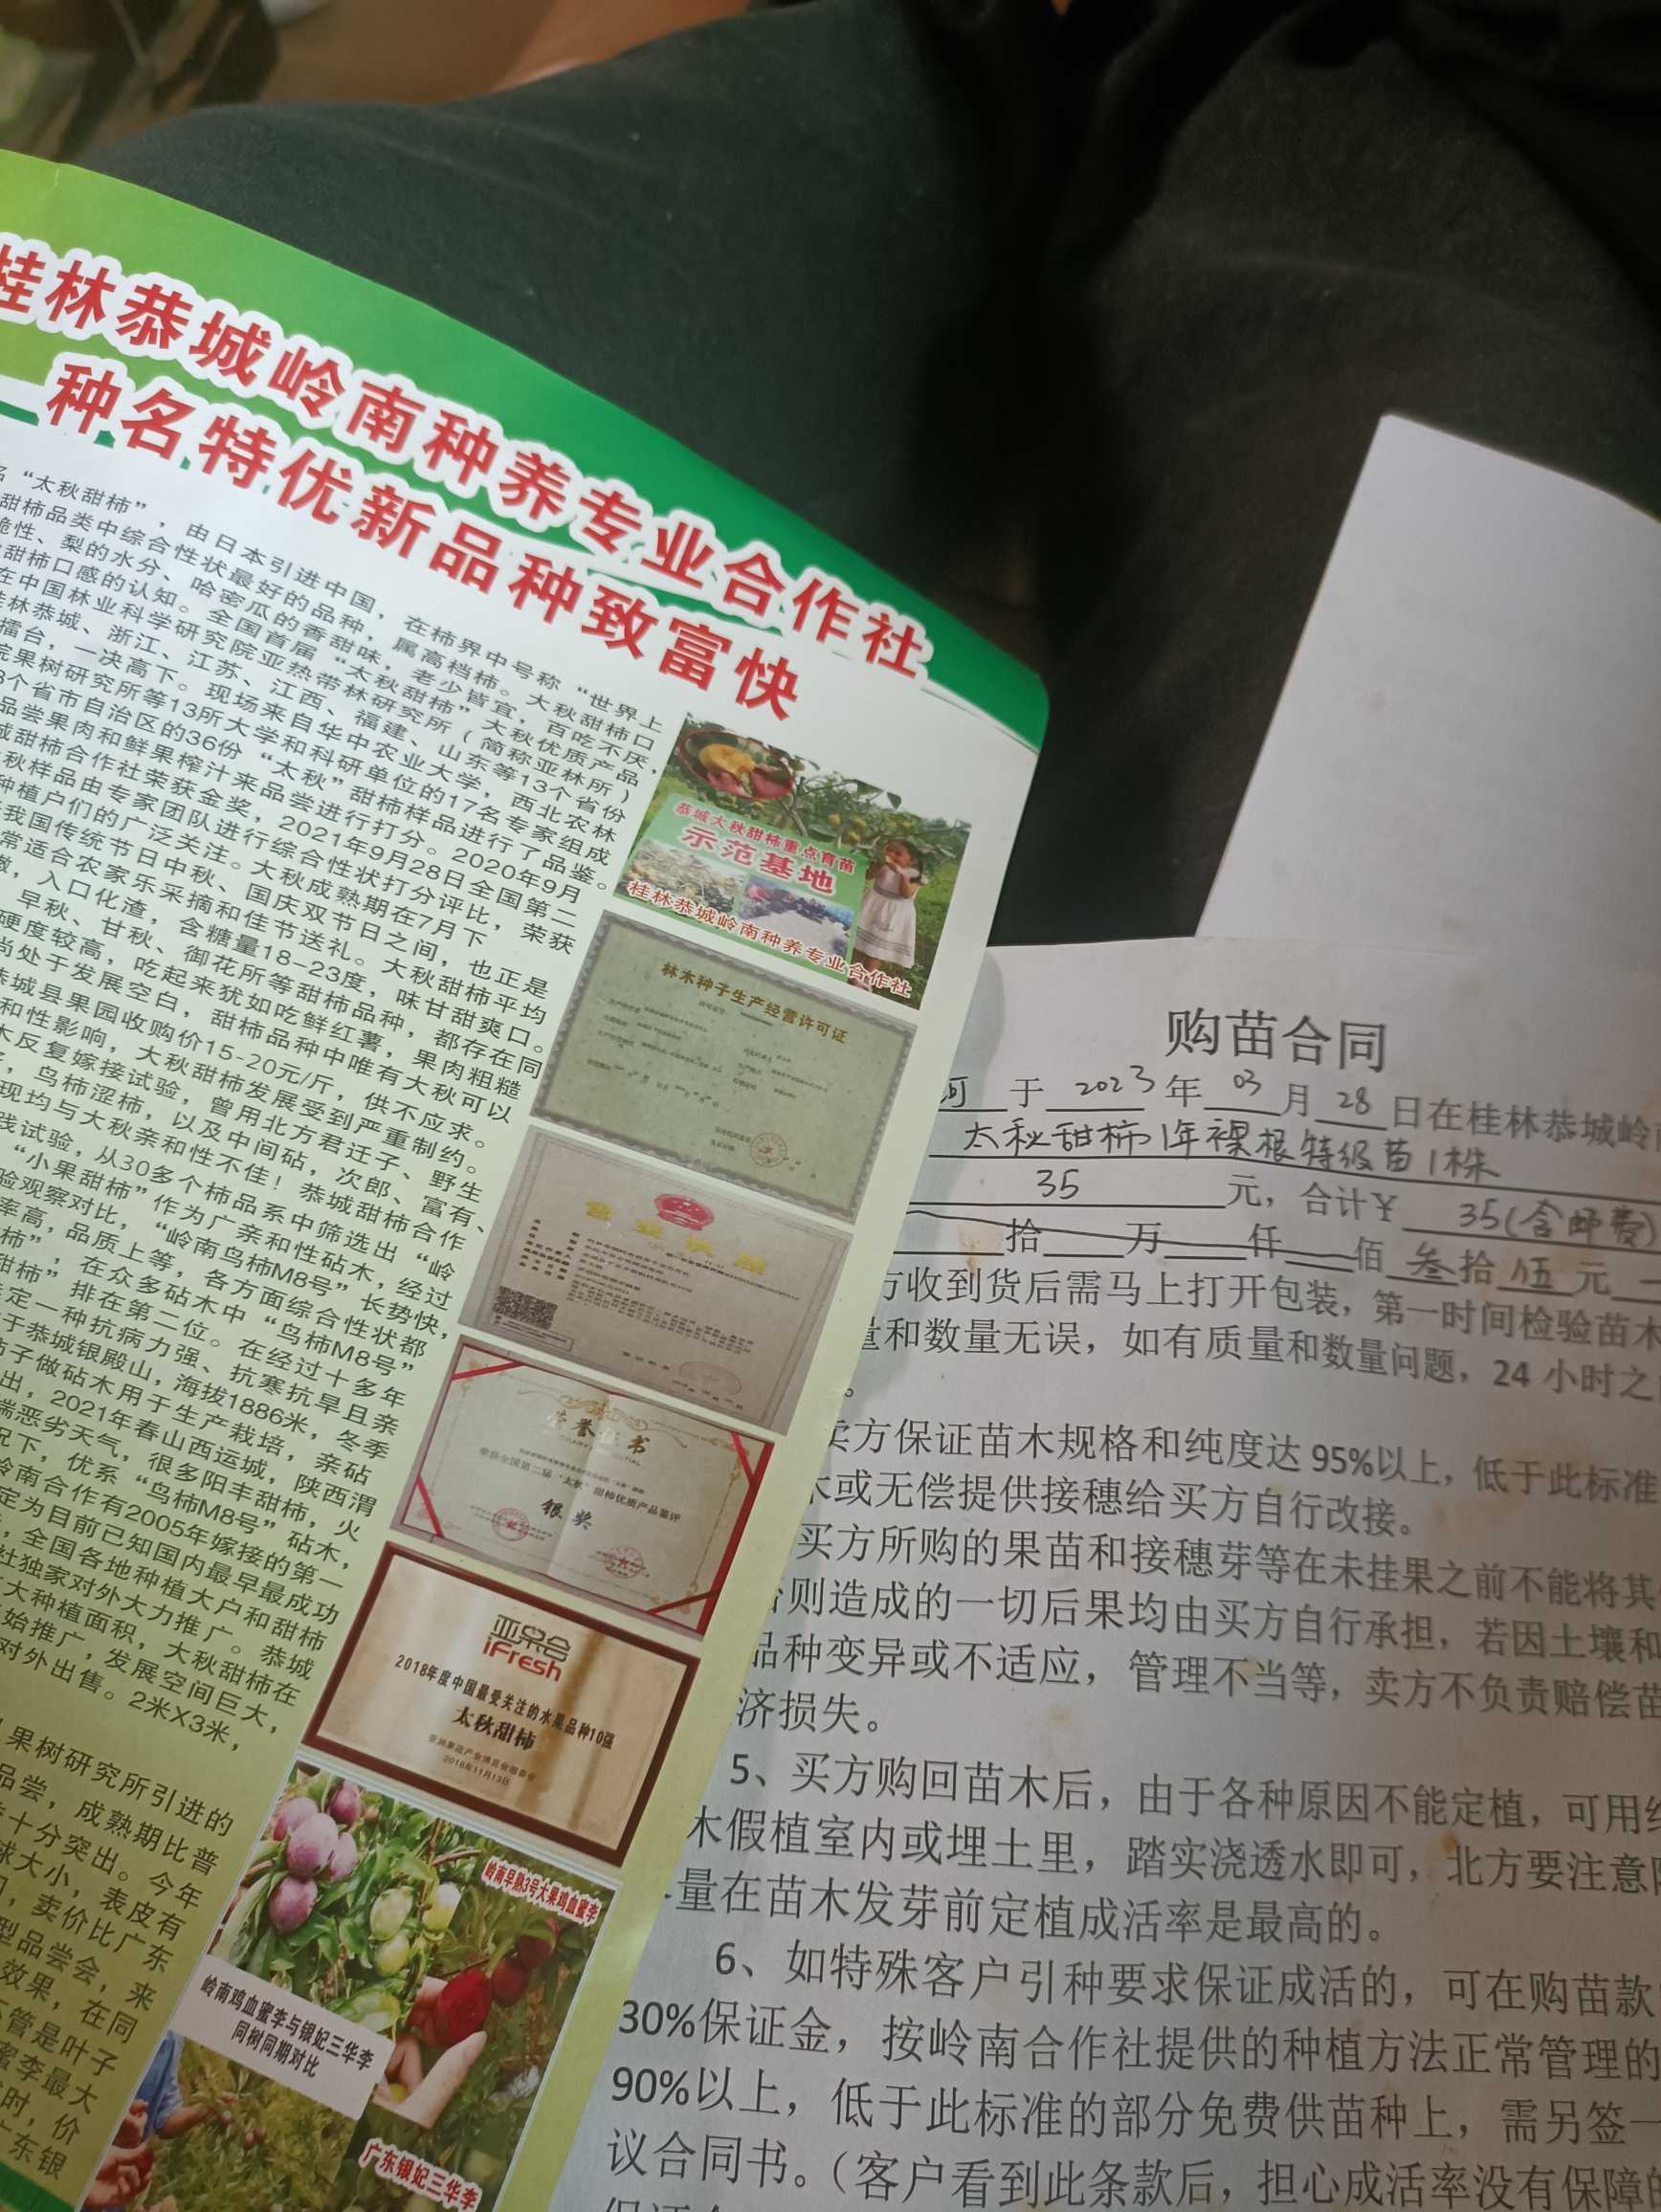 桂林恭城岭南种养专业合作社
种名特优新品种致富快
“太秋甜柿”，由日本引进中国，在柿界中号称“世界上
甜柿品类中综合性状最好的品种，属高档柿。大秋甜柿口
脆性、梨的水分、哈密瓜的香甜味，老少皆宜，百吃不厌，
甜柿口感的认知。全国首届“太秋甜柿”大秋优质产品
在中国林业科学研究院亚热带林研究所（简称亚林所）
桂林恭城、浙江、江苏、江西、福建、山东等13个省份
擂台，一决高下。现场来自华中农业大学，西北农林
院果树研究所等13所大学和科研单位的17名专家组成
个省市自治区的36份“太秋”甜柿样品进行了品鉴。
品尝果肉和鲜果榨汁来品尝进行打分。2020年9月
城甜柿合作社荣获金奖，2021年9月28日全国第二
秋样品由专家团队进行综合性状打分评比，荣获
种植户们的广泛关注。大秋成熟期在7月下
我国传统节日中秋、国庆双节日之间，也正是
常适合农家乐采摘和佳节送礼。大秋甜柿平均
，入口化渣，含糖量18-23度，味甘甜爽口。
早秋、甘秋、御花所等甜柿品种，都存在同
硬度较高，吃起来犹如吃鲜红薯，果肉粗糙
尚处于发展空白，甜柿品种中唯有大秋可以
恭城县果园收购价15-20元/斤，供不应求。
和性影响，大秋甜柿发展受到严重制约。
木反复嫁接试验，曾用北方君迁子、野生
，鸟柿涩柿，以及中间砧，次郎、富有、
现均与大秋亲和性不佳！恭城甜柿合作
践试验，从30多个柿品系中筛选出“岭
“小果甜柿”作为广亲和性砧木，经过
验观察对比，“岭南鸟柿M8号”长势快，
率高，品质上等，各方面综合性状都
柿”，在众多砧木中“鸟柿M8号”
甜柿”排在第二位。在经过十多年
定一种抗病力强、抗寒抗旱且亲
于恭城银殿山，海拔1886米，冬季
柿子做砧木用于生产栽培，亲砧
出，2021年春山西运城，陕西渭
端恶劣天气，很多阳丰甜柿，火
况下，优系“鸟柿M8号”砧木，
岭南合作有2005年嫁接的第一
定为目前已知国内最早最成功
，全国各地种植大户和甜柿
社独家对外大力推广。恭城
大种植面积，大秋甜柿在
始推广，发展空间巨大，
对外出售。2米X3米，
果树研究所引进的
品尝，成熟期比普
十分突出。今年
球大小，表皮有
，卖价比广东
型品尝会，来
效果，在同
不管是叶子
蜜李最大
时，价
广东银
恭城大秋甜柿重点育苗
示范基地
桂林恭城岭南种养专业合作社
林木种子生产经营许可证
营业执照
荣誉证书
荣获全国第二届“太秋”甜柿优质产品鉴评
银奖
亚果会
iFresh
2018年度中国最受关注的水果品种10强
太秋甜柿
2018年11月13日
岭南早熟3号大果鸡血蜜李
岭南鸡血蜜李与银妃三华李
同树同期对比
广东银妃三华李
购苗合同
于 2023 年 03 月 28 日在桂林恭城岭
太秋甜柿1年裸根特级苗1株
35 元，合计￥ 35(含邮费)
拾 万 仟 佰 叁 拾 伍 元
方收到货后需马上打开包装，第一时间检验苗木
量和数量无误，如有质量和数量问题，24 小时之
。
卖方保证苗木规格和纯度达 95%以上，低于此标准
木或无偿提供接穗给买方自行改接。
买方所购的果苗和接穗芽等在未挂果之前不能将其
否则造成的一切后果均由买方自行承担，若因土壤和
品种变异或不适应，管理不当等，卖方不负责赔偿苗
济损失。
5、买方购回苗木后，由于各种原因不能定植，可用
木假植室内或埋土里，踏实浇透水即可，北方要注意
量在苗木发芽前定植成活率是最高的。
6、如特殊客户引种要求保证成活的，可在购苗款
30%保证金，按岭南合作社提供的种植方法正常管理的
90%以上，低于此标准的部分免费供苗种上，需另签一
议合同书。（客户看到此条款后，担心成活率没有保障的